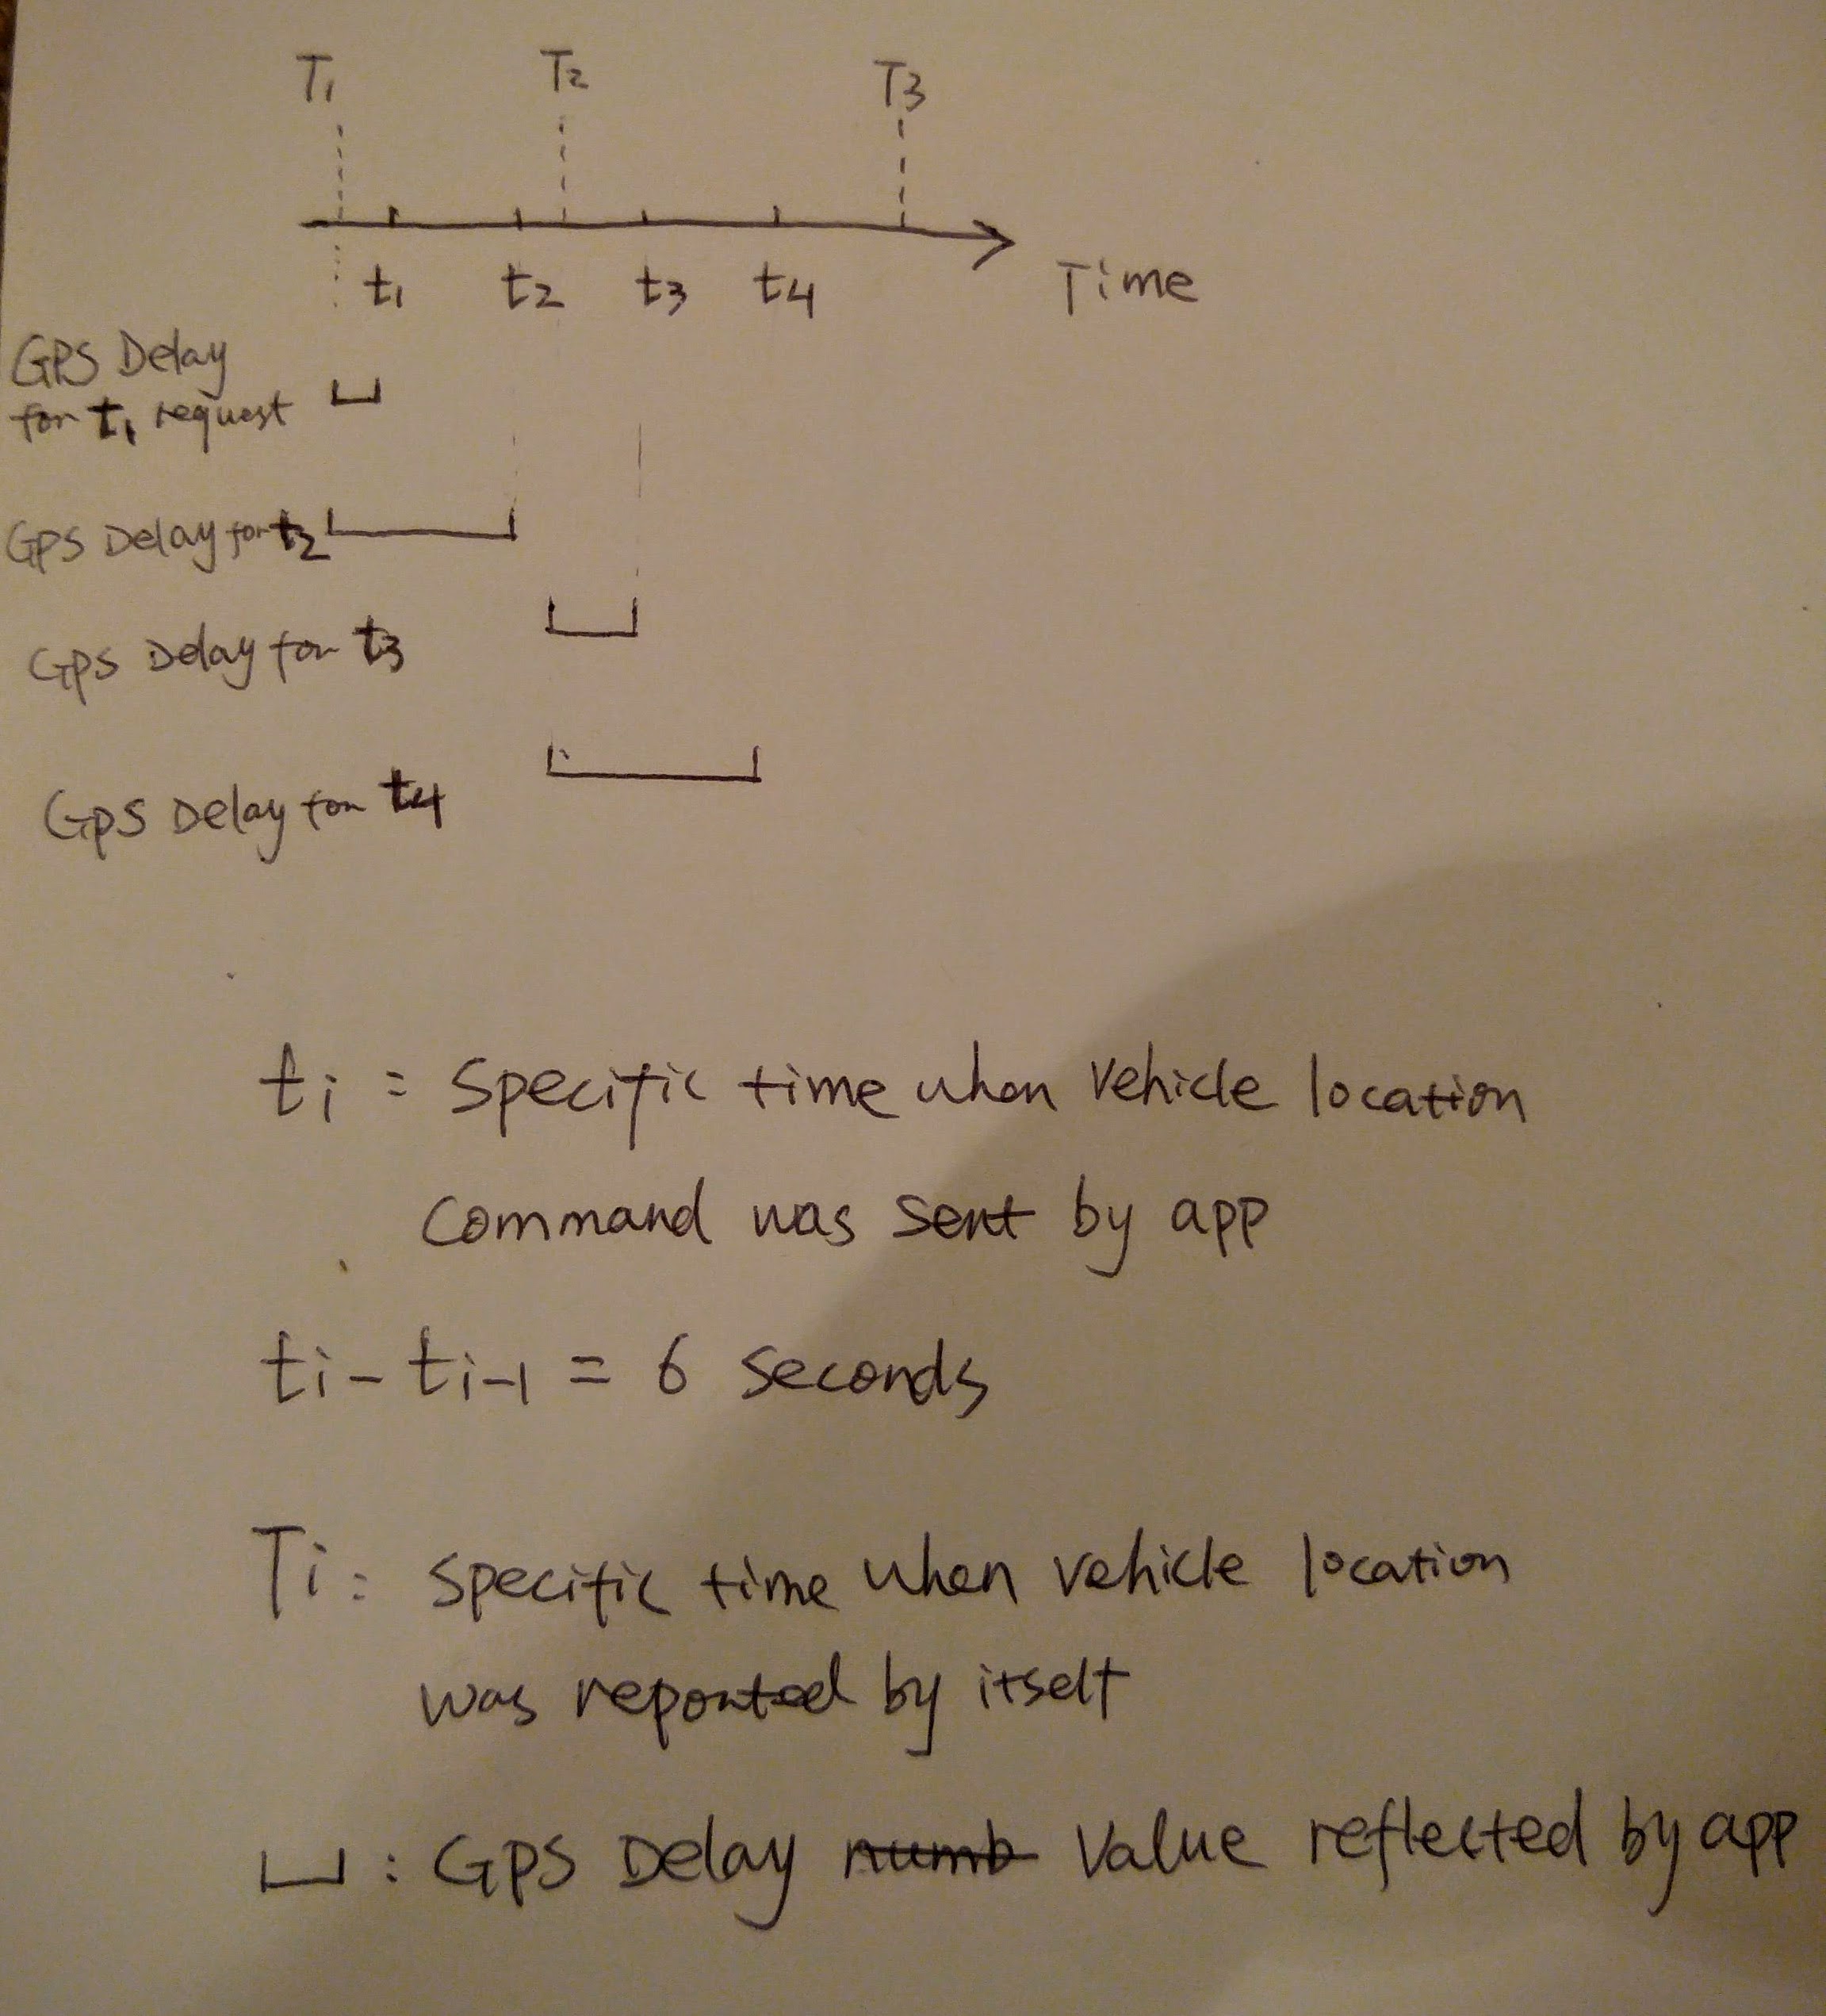 T₁ T₂ T3
t₁ t₂ t3 t4 Time
GPS Delay
for t₁ request
GPS Delay for t₂
GPS Delay for t3
GPS Delay for t4
ti = Specific time when vehicle location
Command was sent by app
ti - ti-1 = 6 seconds
Ti : Specific time when vehicle location
was reported by itself
: GPS Delay numb Value reflected by app